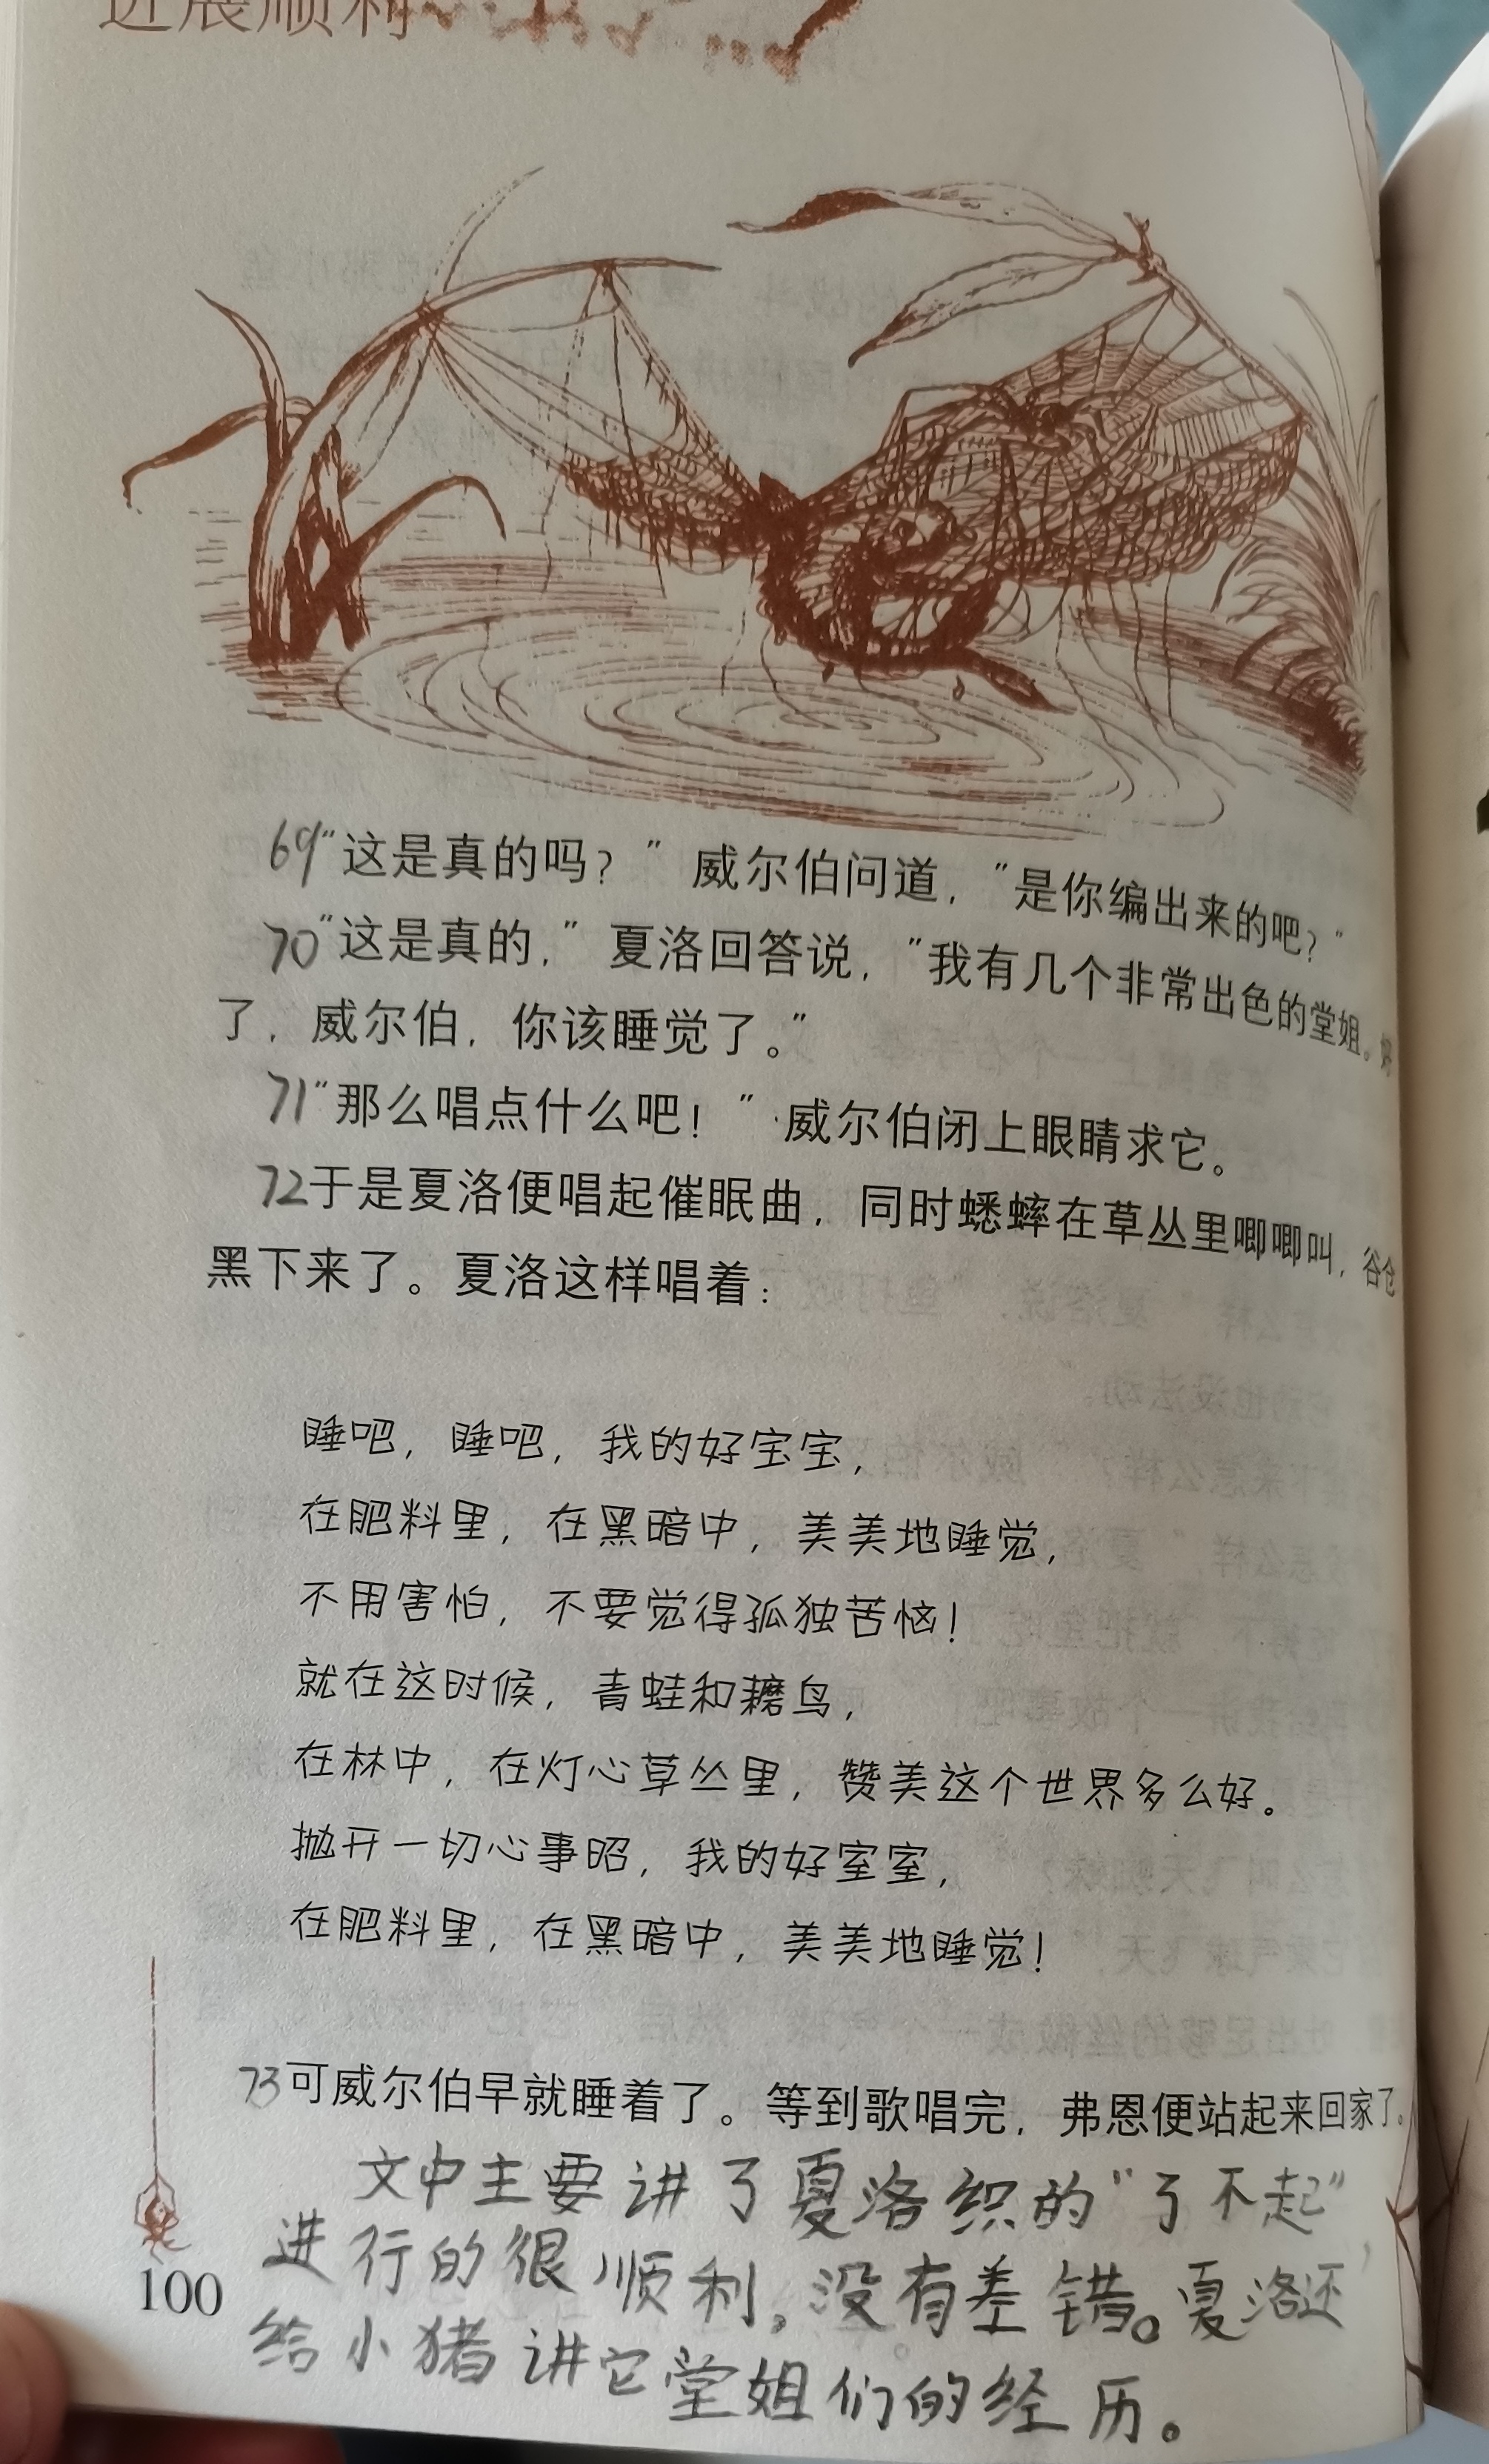 进展顺利
69“这是真的吗？”威尔伯问道，“是你编出来的吧？”
70“这是真的，”夏洛回答说，“我有几个非常出色的堂姐。好
了，威尔伯，你该睡觉了。”
71“那么唱点什么吧！”威尔伯闭上眼睛求它。
72于是夏洛便唱起催眠曲，同时蟋蟀在草丛里唧唧叫，谷仓
黑下来了。夏洛这样唱着：
睡吧，睡吧，我的好宝宝，
在肥料里，在黑暗中，美美地睡觉，
不用害怕，不要觉得孤独苦恼！
就在这时候，青蛙和耱鸟，
在林中，在灯心草丛里，赞美这个世界多么好。
抛开一切心事昭，我的好室室，
在肥料里，在黑暗中，美美地睡觉！
73可威尔伯早就睡着了。等到歌唱完，弗恩便站起来回家了。
文中主要讲了夏洛织的“了不起”
进行的很顺利，没有差错。夏洛还
给小猪讲它堂姐们的经历。
100